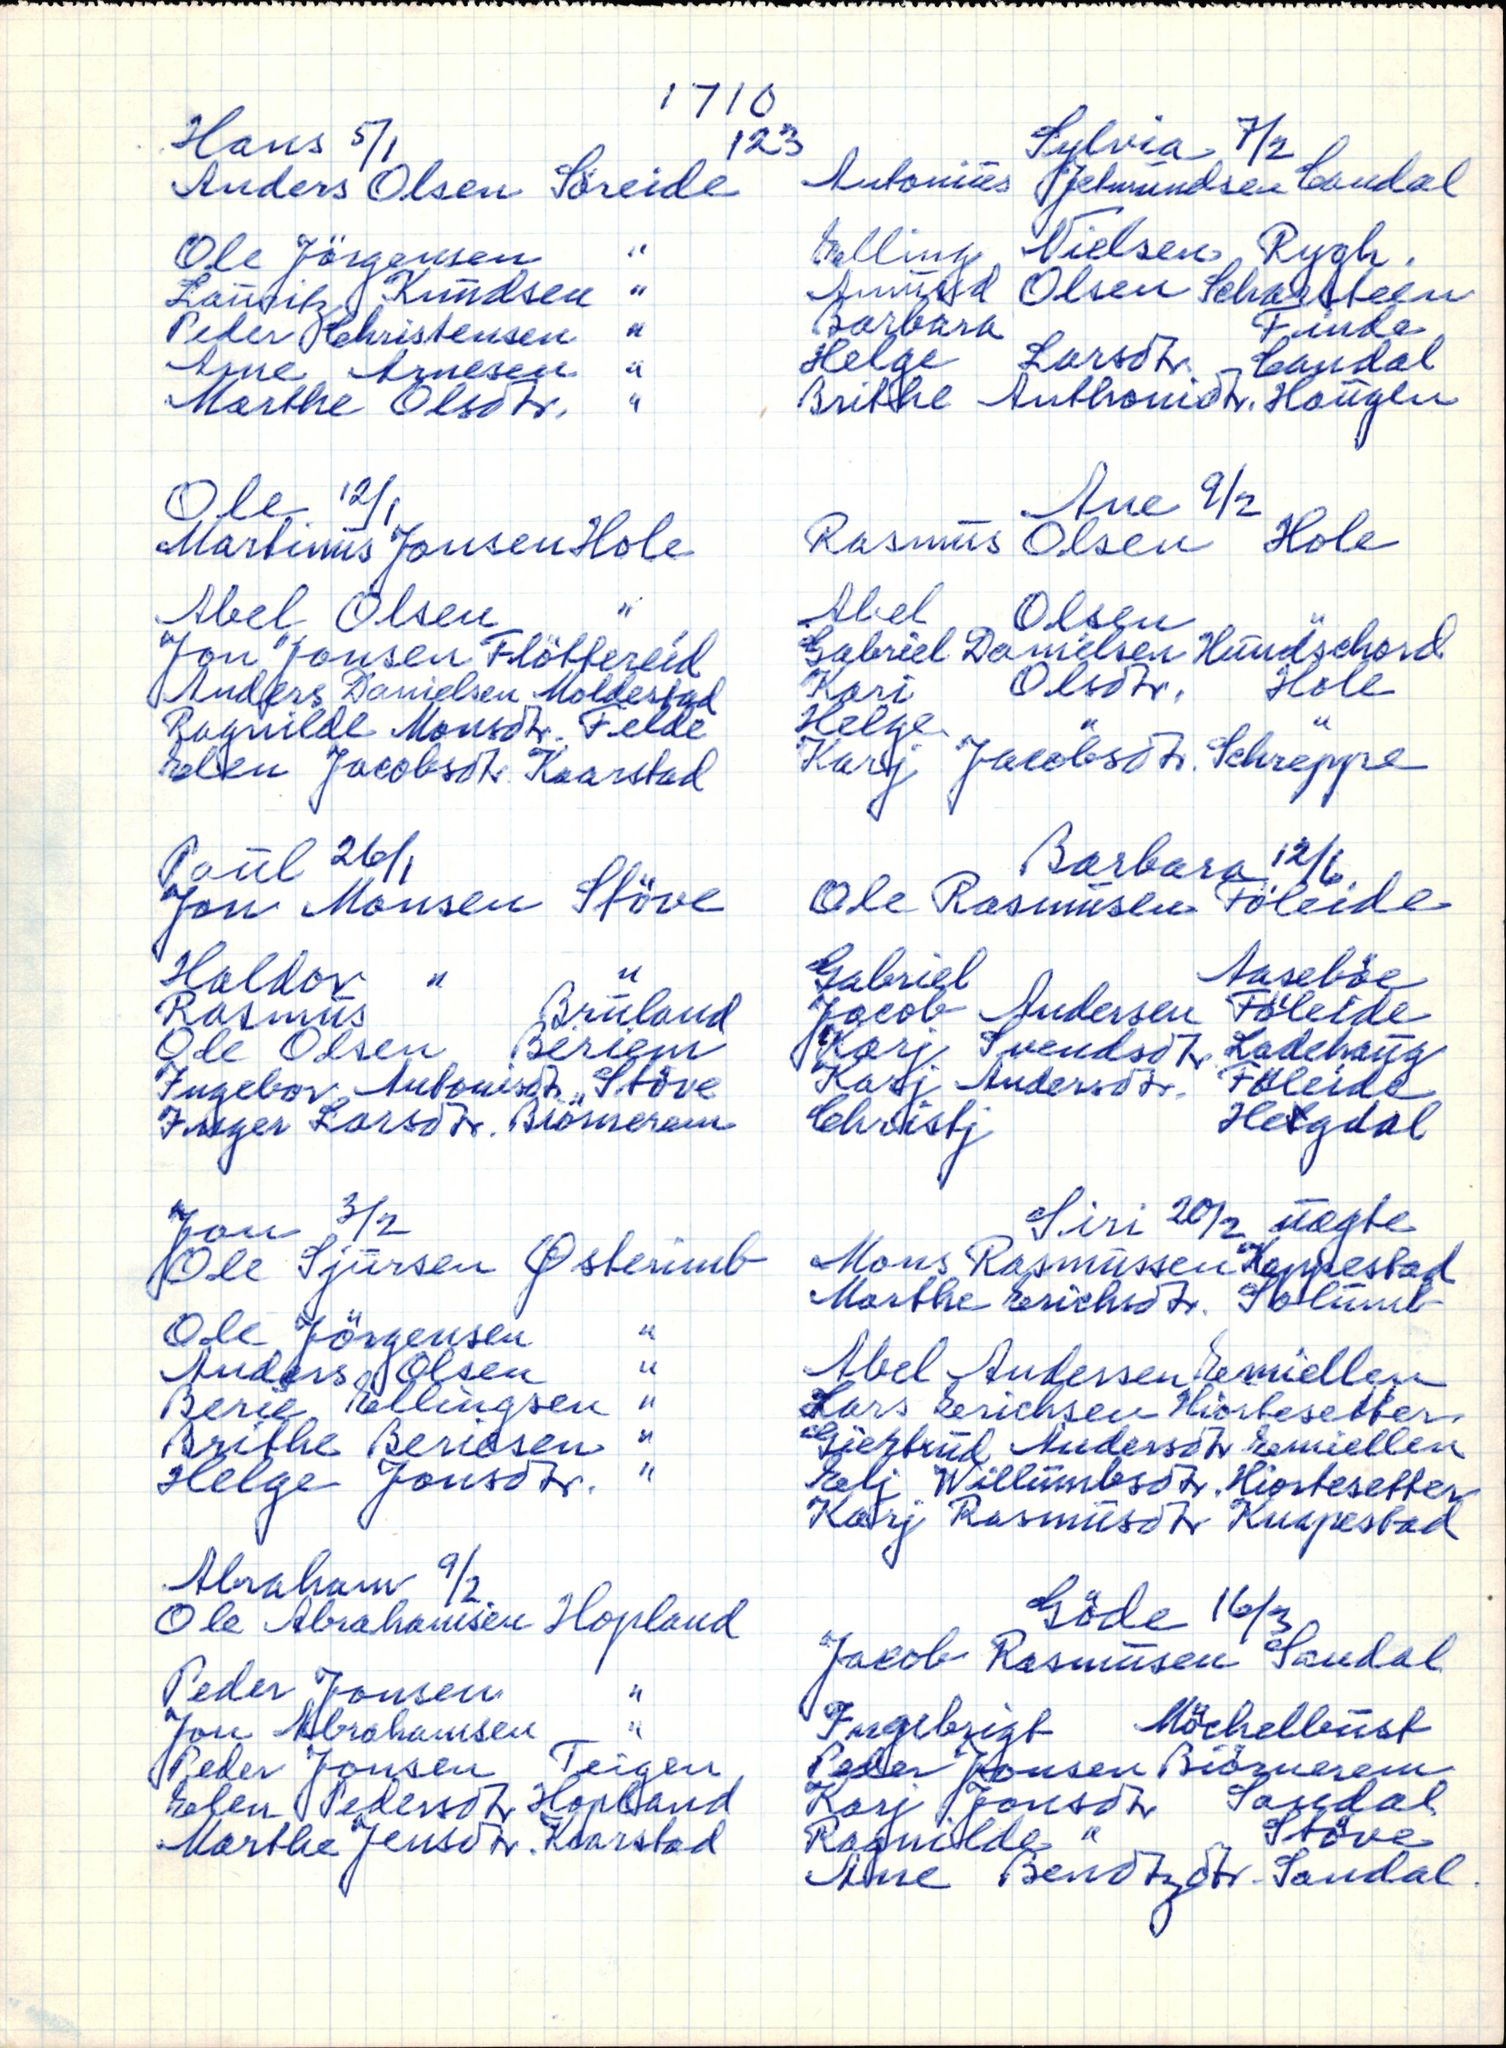 1710
123
Hans 5/1
Anders Olsen Söreide
Ole Jörgensen "
Lauritz Knudsen "
Peder Christensen "
Arne Arnesen "
Marthe Olsdtr. "
Ole 12/1
Martinus Jonsen Hole
Abel Olsen "
Jon Jonsen Flöttereid
Anders Danielsen Moldestad
Ragnilde Monsdtr. Felde
Elen Jacobsdtr. Kaarstad
Paul 26/1
Jon Monsen Stöve
Haldor " "
Rasmus Bruland
Ole Olsen Beriem
Ingebor Antonisdtr. Stöve
Inger Larsdtr. Biörnerem
Jon 3/2
Ole Sjursen Østerimb
Ole Jörgensen "
Anders Olsen "
Berie Ellingsen "
Brithe Beriesen "
Helge Jonsdtr. "
Abraham 9/2
Ole Abrahamsen Hopland
Peder Jonsen "
Jon Abrahamsen "
Peder Jonsen Teigen
Elen Pedersdtr. Hopland
Marthe Jensdtr. Kaarstad
Sylvia 7/2
Antonius Jetmundsen Candal
Elling Nielsen Rygh.
Amund Olsen Scharsteen
Barbara Finde
Helge Larsdtr. Candal
Brithe Anthonidtr. Haugen
Ane 9/2
Rasmus Olsen Hole
Abel Olsen "
Gabriel Danielsen Hundschord
Kari Olsdtr. Hole
Helge " "
Karj Jacobsdtr. Schreppe
Barbara 12/6
Ole Rasmusen Föleide
Gabriel Aaseböe
Jacob Andersen Föleide
Karj Svendsdtr. Ladehaug
Karj Andersdtr. Föleide
Christj Hegdal
Siri 20/2 uægte
Mons Rasmussen Kappestad
Marthe Erichsdtr. Solumb
Abel Andersen Emiellem
Lars Erichsen Hiortesetter.
Giertrud Andersdtr. Emiellem
Elj Willumbsdtr. Hiortesetter
Karj Rasmusdtr. Knapestad
Göde 16/3
Jacob Rasmusen Sandal
Ingebrigt Möchelbust
Peder Jonsen Biörnerem
Karj Jonsdtr Sandal
Ragnilde " Stöve
Ane Bendtzdtr. Sandal.